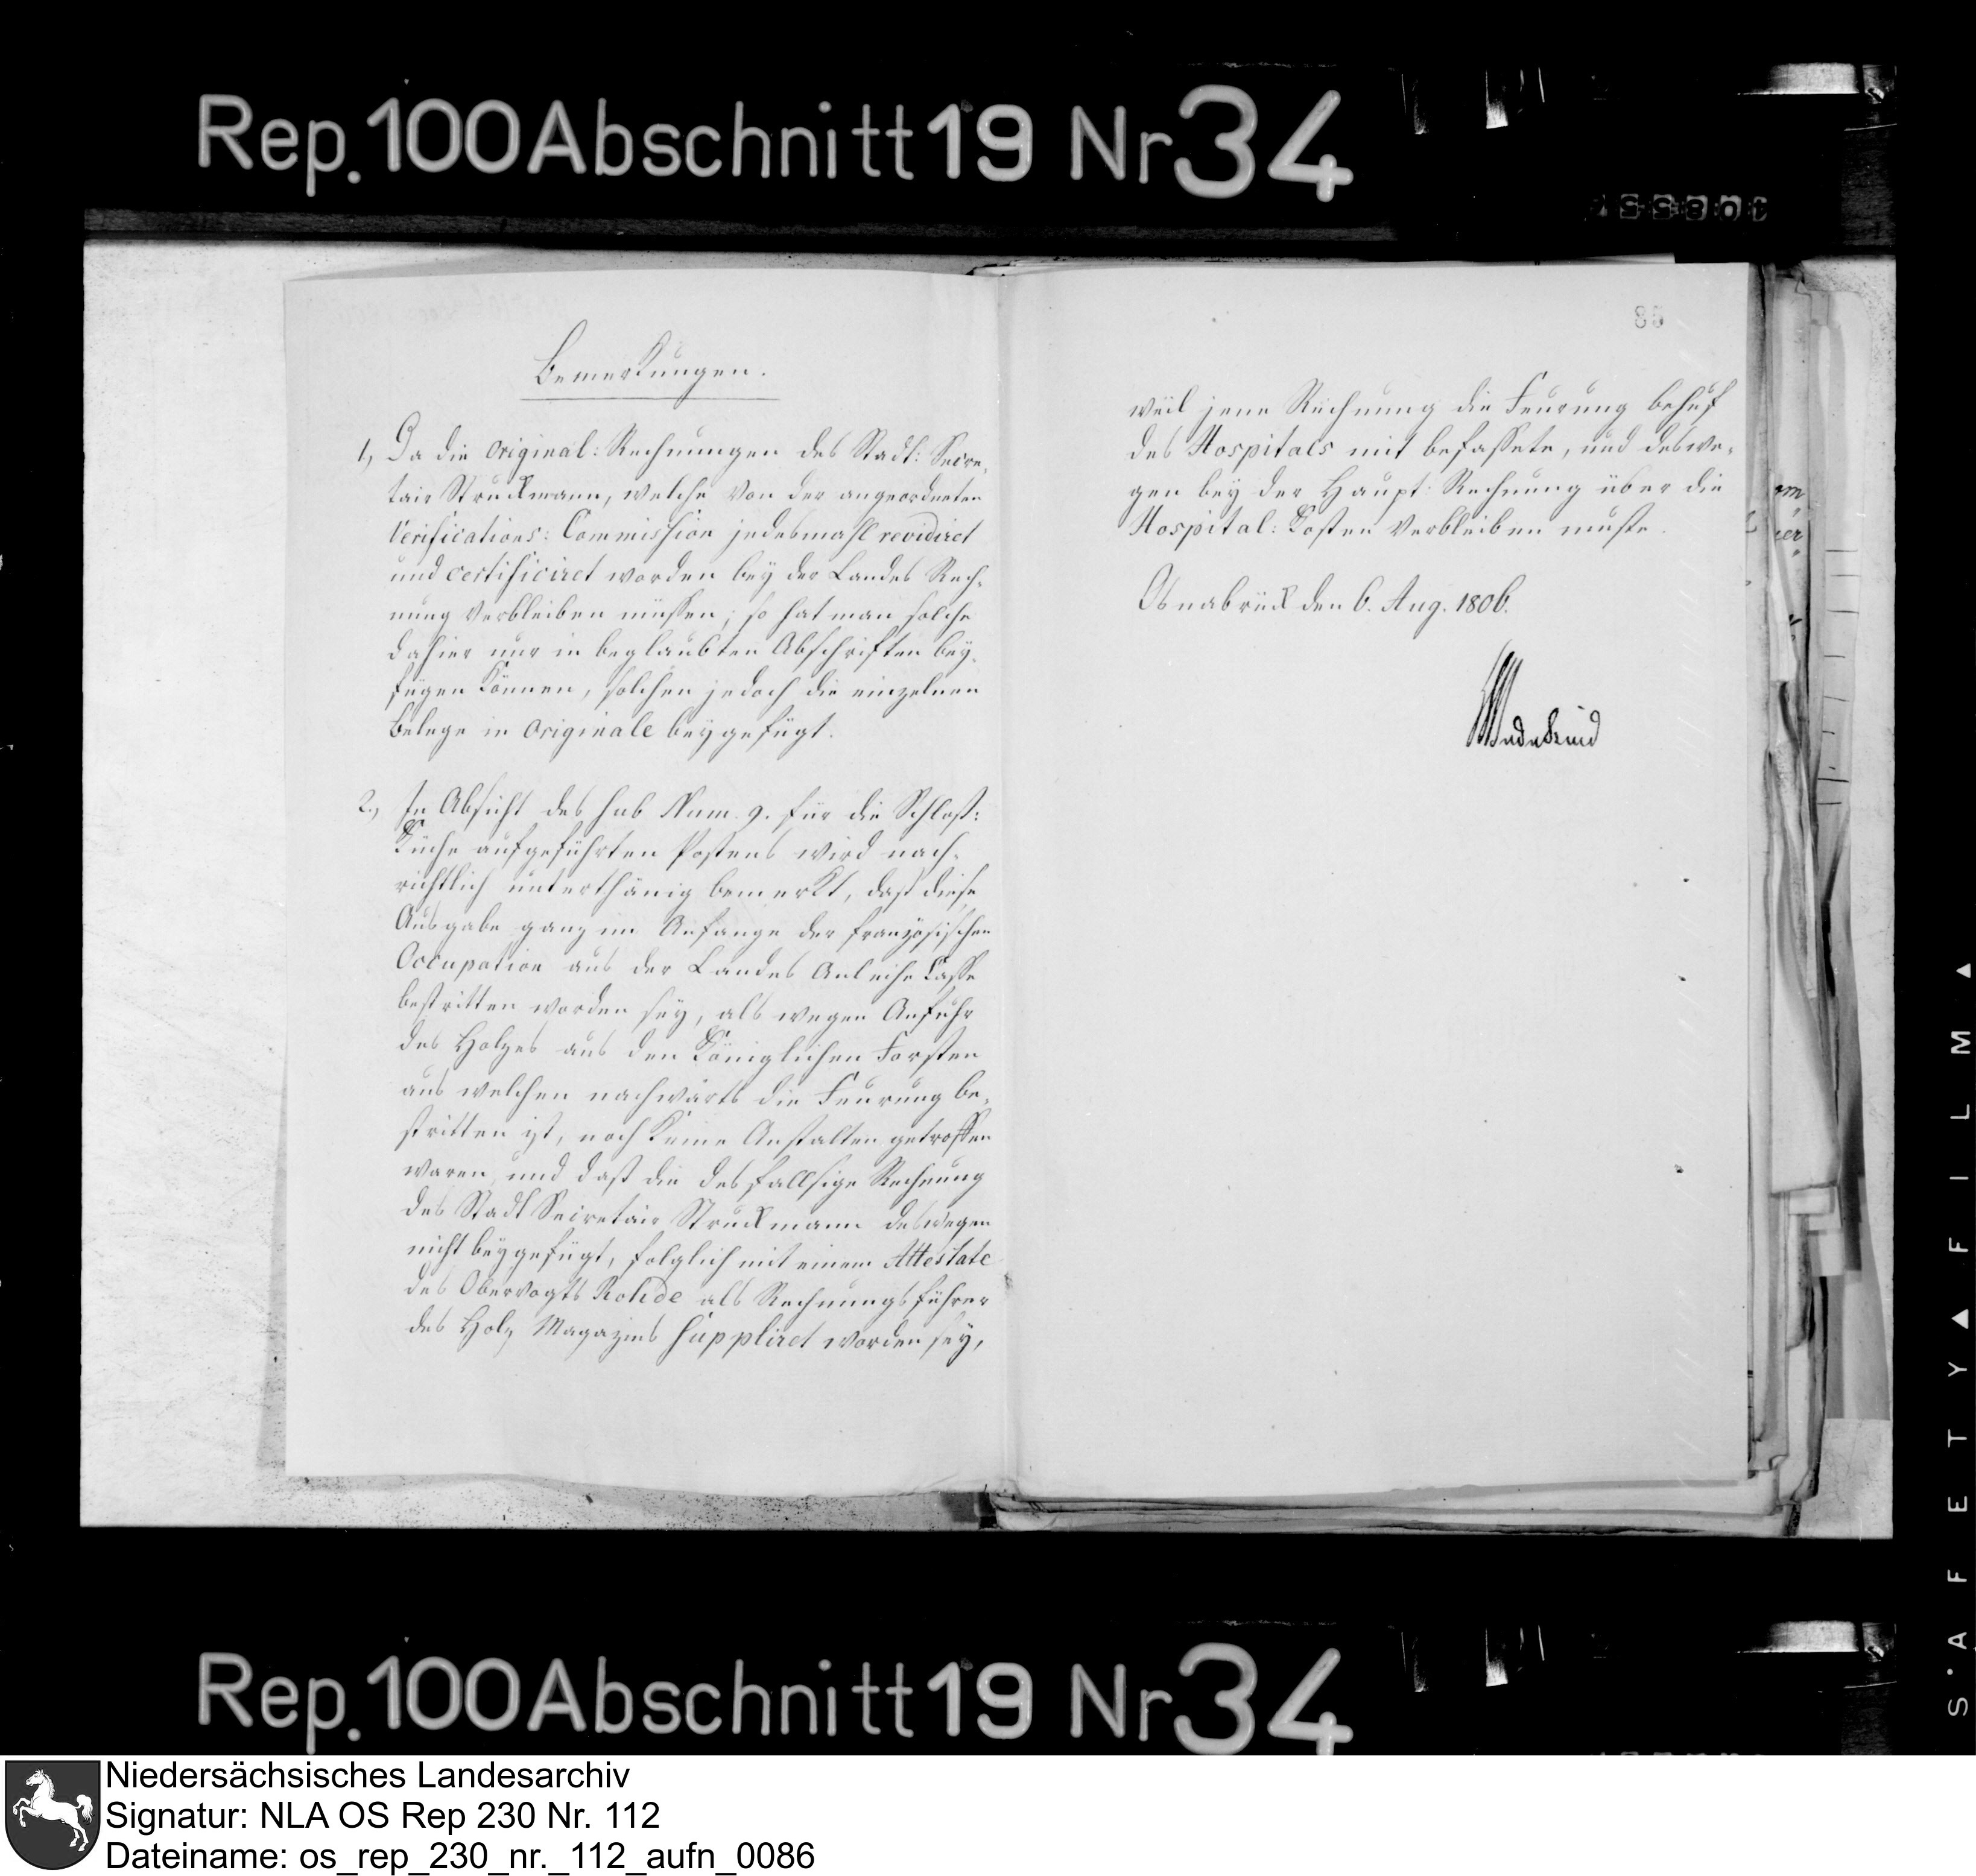 Rep. 100 Abschnitt 19 Nr 34
Bemerkungen.
1, Da die Original: Rechnungen des Stadt: Secre-
tair Struckmann, welche von der angeordneten
Verifications: Commission jedesmahl revidiret
und certificiret worden bey der Landes Rech-
nung verbleiben müssen; so hat man solche
dahier nur in beglaubten Abschriften bey-
fügen können, solchen jedoch die einzelnen
Belege in Originale beygefügt.
2., In Absicht des sub Num. 9. für die Schloß:
Küche aufgeführten Postens wird nach-
richtlich unterthänig bemerkt, daß diese
Ausgabe ganz im Anfange der französischen
Occupation aus der Landes Anleihe Casse
bestritten worden sey, als wegen Anfuhr
des Holzes aus den Königlichen Forsten
aus welchen nachwärts die Feurung be-
stritten ist, noch keine Anstalten getroffen
waren, und daß die desfallsige Rechnung
des Stadt Secretair Struckmann deswegen
nicht beygefügt, folglich mit einem Attestate
des Obervogts Rohde als Rechnungsführer
des Holz Magazins suppliret worden sey,
weil jene Rechnung die Feurung behuf
des Hospitals mit befassete, und deswe-
gen bey der Haupt: Rechnung über die
Hospital: Kosten verbleiben muste.
Osnabrück den 6. Aug. 1806.
Wedekind
Rep. 100 Abschnitt 19 Nr 34
SAFETY▲FILM▲
Niedersächsisches Landesarchiv
Signatur: NLA OS Rep 230 Nr. 112
Dateiname: os_rep_230_nr._112_aufn_0086